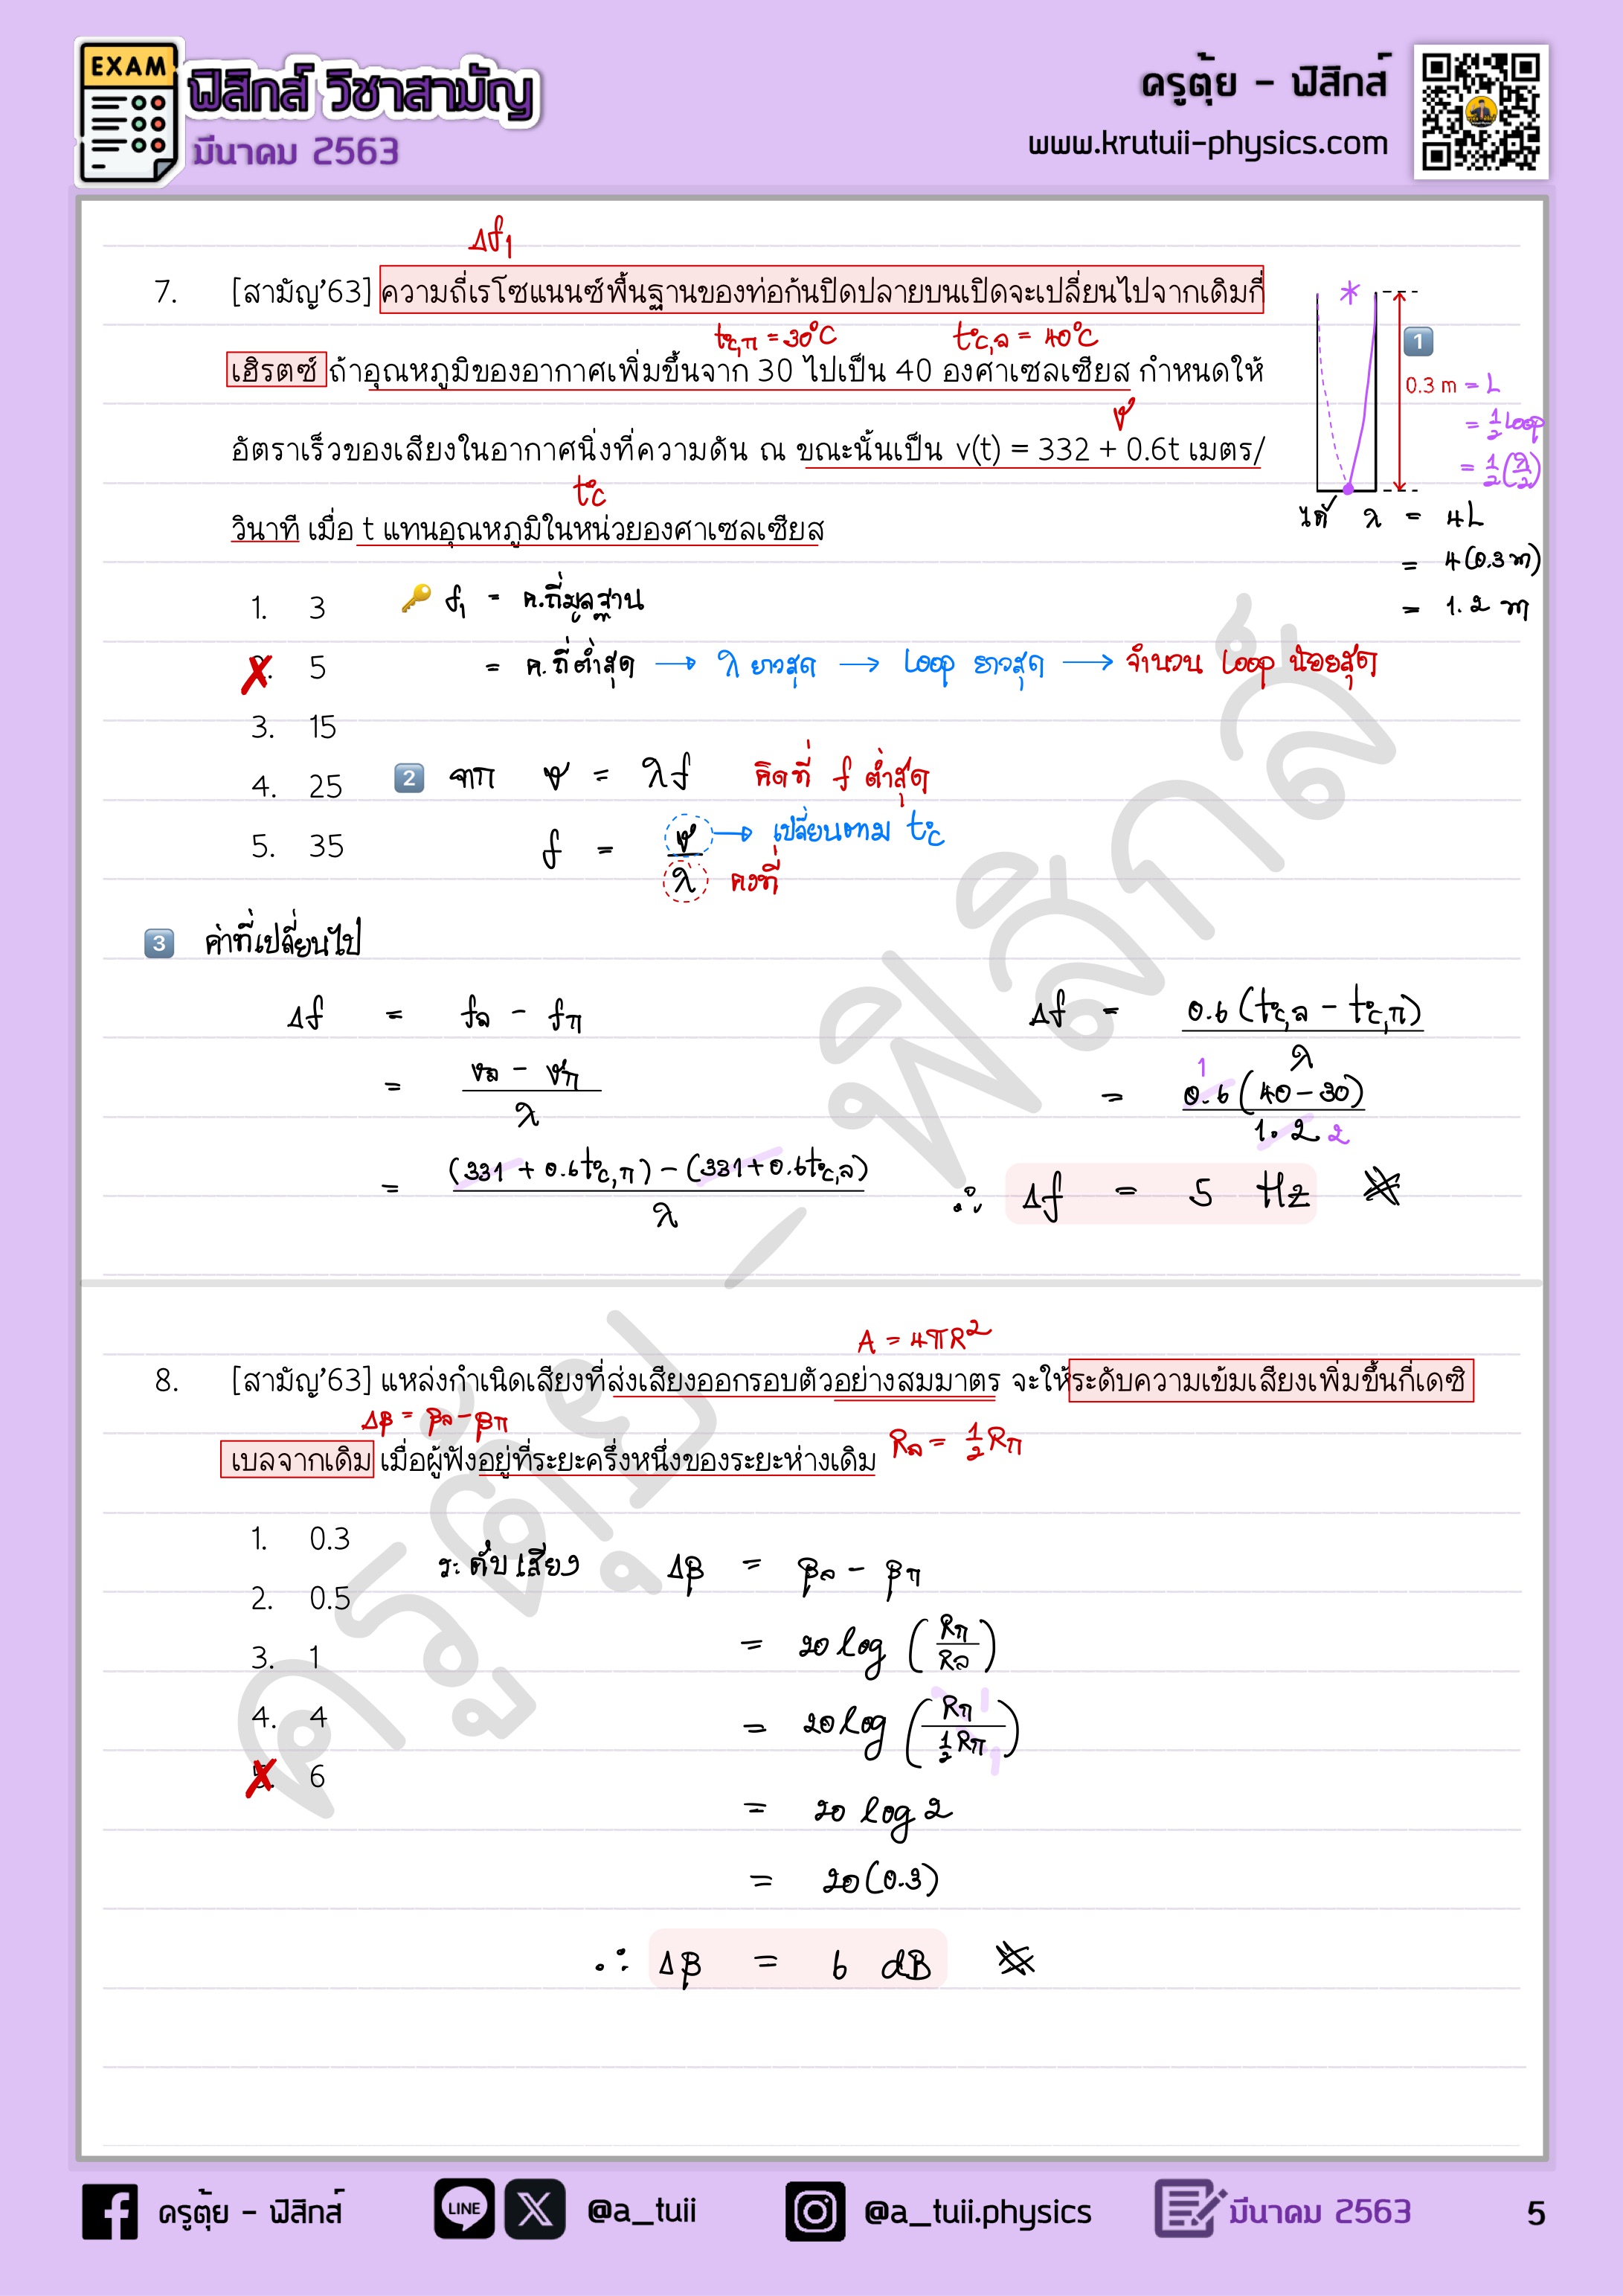 EXAM
ฟิสิกส์ วิชาสามัญ
มีนาคม 2563
ครูตุ้ย - ฟิสิกส์
www.krutuii-physics.com
Δf₁
7. [สามัญ'63] ความถี่เรโซแนนซ์พื้นฐานของท่อก้นปิดปลายบนเปิดจะเปลี่ยนไปจากเดิมกี่
t°C,ก = 30°C t°C,ล = 40°C
เฮิรตซ์ ถ้าอุณหภูมิของอากาศเพิ่มขึ้นจาก 30 ไปเป็น 40 องศาเซลเซียส กำหนดให้
v
อัตราเร็วของเสียงในอากาศนิ่งที่ความดัน ณ ขณะนั้นเป็น v(t) = 332 + 0.6t เมตร/
t°C
วินาที เมื่อ t แทนอุณหภูมิในหน่วยองศาเซลเซียส
1
0.3 m = L
= ½ Loop
= ½(λ/2)
ได้ λ = 4L
= 4(0.3 m)
= 1.2 m
1. 3
2. 5
3. 15
4. 25
5. 35
f₁ = ค.ถี่มูลฐาน
= ค.ถี่ต่ำสุด → λ ยาวสุด → Loop ยาวสุด → จำนวน Loop น้อยสุด
2 จาก v = λf คิดที่ f ต่ำสุด
f = v/λ
เปลี่ยนตาม t°C
คงที่
3 ค่าที่เปลี่ยนไป
Δf = fล - fก
= (vล - vก)/λ
= ((331 + 0.6t°C,ก) - (331 + 0.6t°C,ล))/λ
Δf = 0.6(t°C,ล - t°C,ก)/λ
= 0.6(40 - 30)/1.2
1
2
∴ Δf = 5 Hz
A = 4πR²
8. [สามัญ'63] แหล่งกำเนิดเสียงที่ส่งเสียงออกรอบตัวอย่างสมมาตร จะให้ระดับความเข้มเสียงเพิ่มขึ้นกี่เดซิ
Δβ = βล - βก
เบลจากเดิม เมื่อผู้ฟังอยู่ที่ระยะครึ่งหนึ่งของระยะห่างเดิม Rล = ½ Rก
1. 0.3
2. 0.5
3. 1
4. 4
5. 6
ระดับเสียง Δβ = βล - βก
= 20 log (Rก/Rล)
= 20 log (Rก/½Rก)
= 20 log 2
= 20(0.3)
∴ Δβ = 6 dB
ครูตุ้ย - ฟิสิกส์
ครูตุ้ย - ฟิสิกส์
LINE
X
@a_tuii
@a_tuii.physics
มีนาคม 2563
5